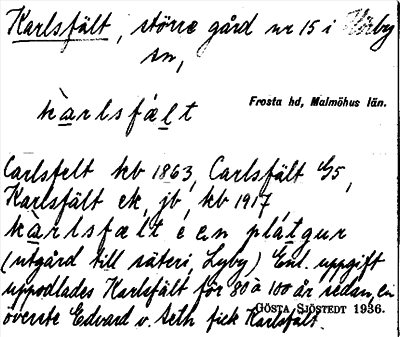 Karlsfält, större gård nr 15 i Hörby
sn,
Frosta hd, Malmöhus län.
kàrlsfælt
Carlsfelt kb 1863, Carlsfält G5,
Karlsfält ek, jb, kb 1917
kàrlsfælt è en plátgur
(utgård till säteri, Lyby) Enl. uppgift
uppodlades Karlsfält för 80 à 100 år sedan, en
överste Edvard v. Seth fick Karlsfält.
GÖSTA SJÖSTEDT 1936.